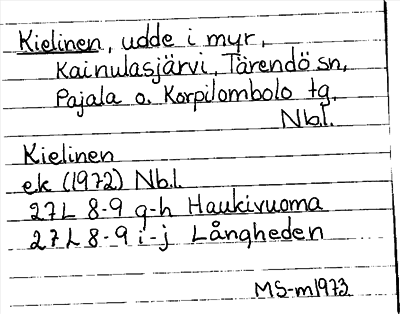 Kielinen, udde i myr,
Kainulasjärvi, Tärendö sn,
Pajala o. Korpilombolo tg,
Nb.l.
Kielinen
ek (1972) Nb.l.
27L 8-9 g-h Haukivuoma
27L 8-9 i-j Långheden
MS-m1973